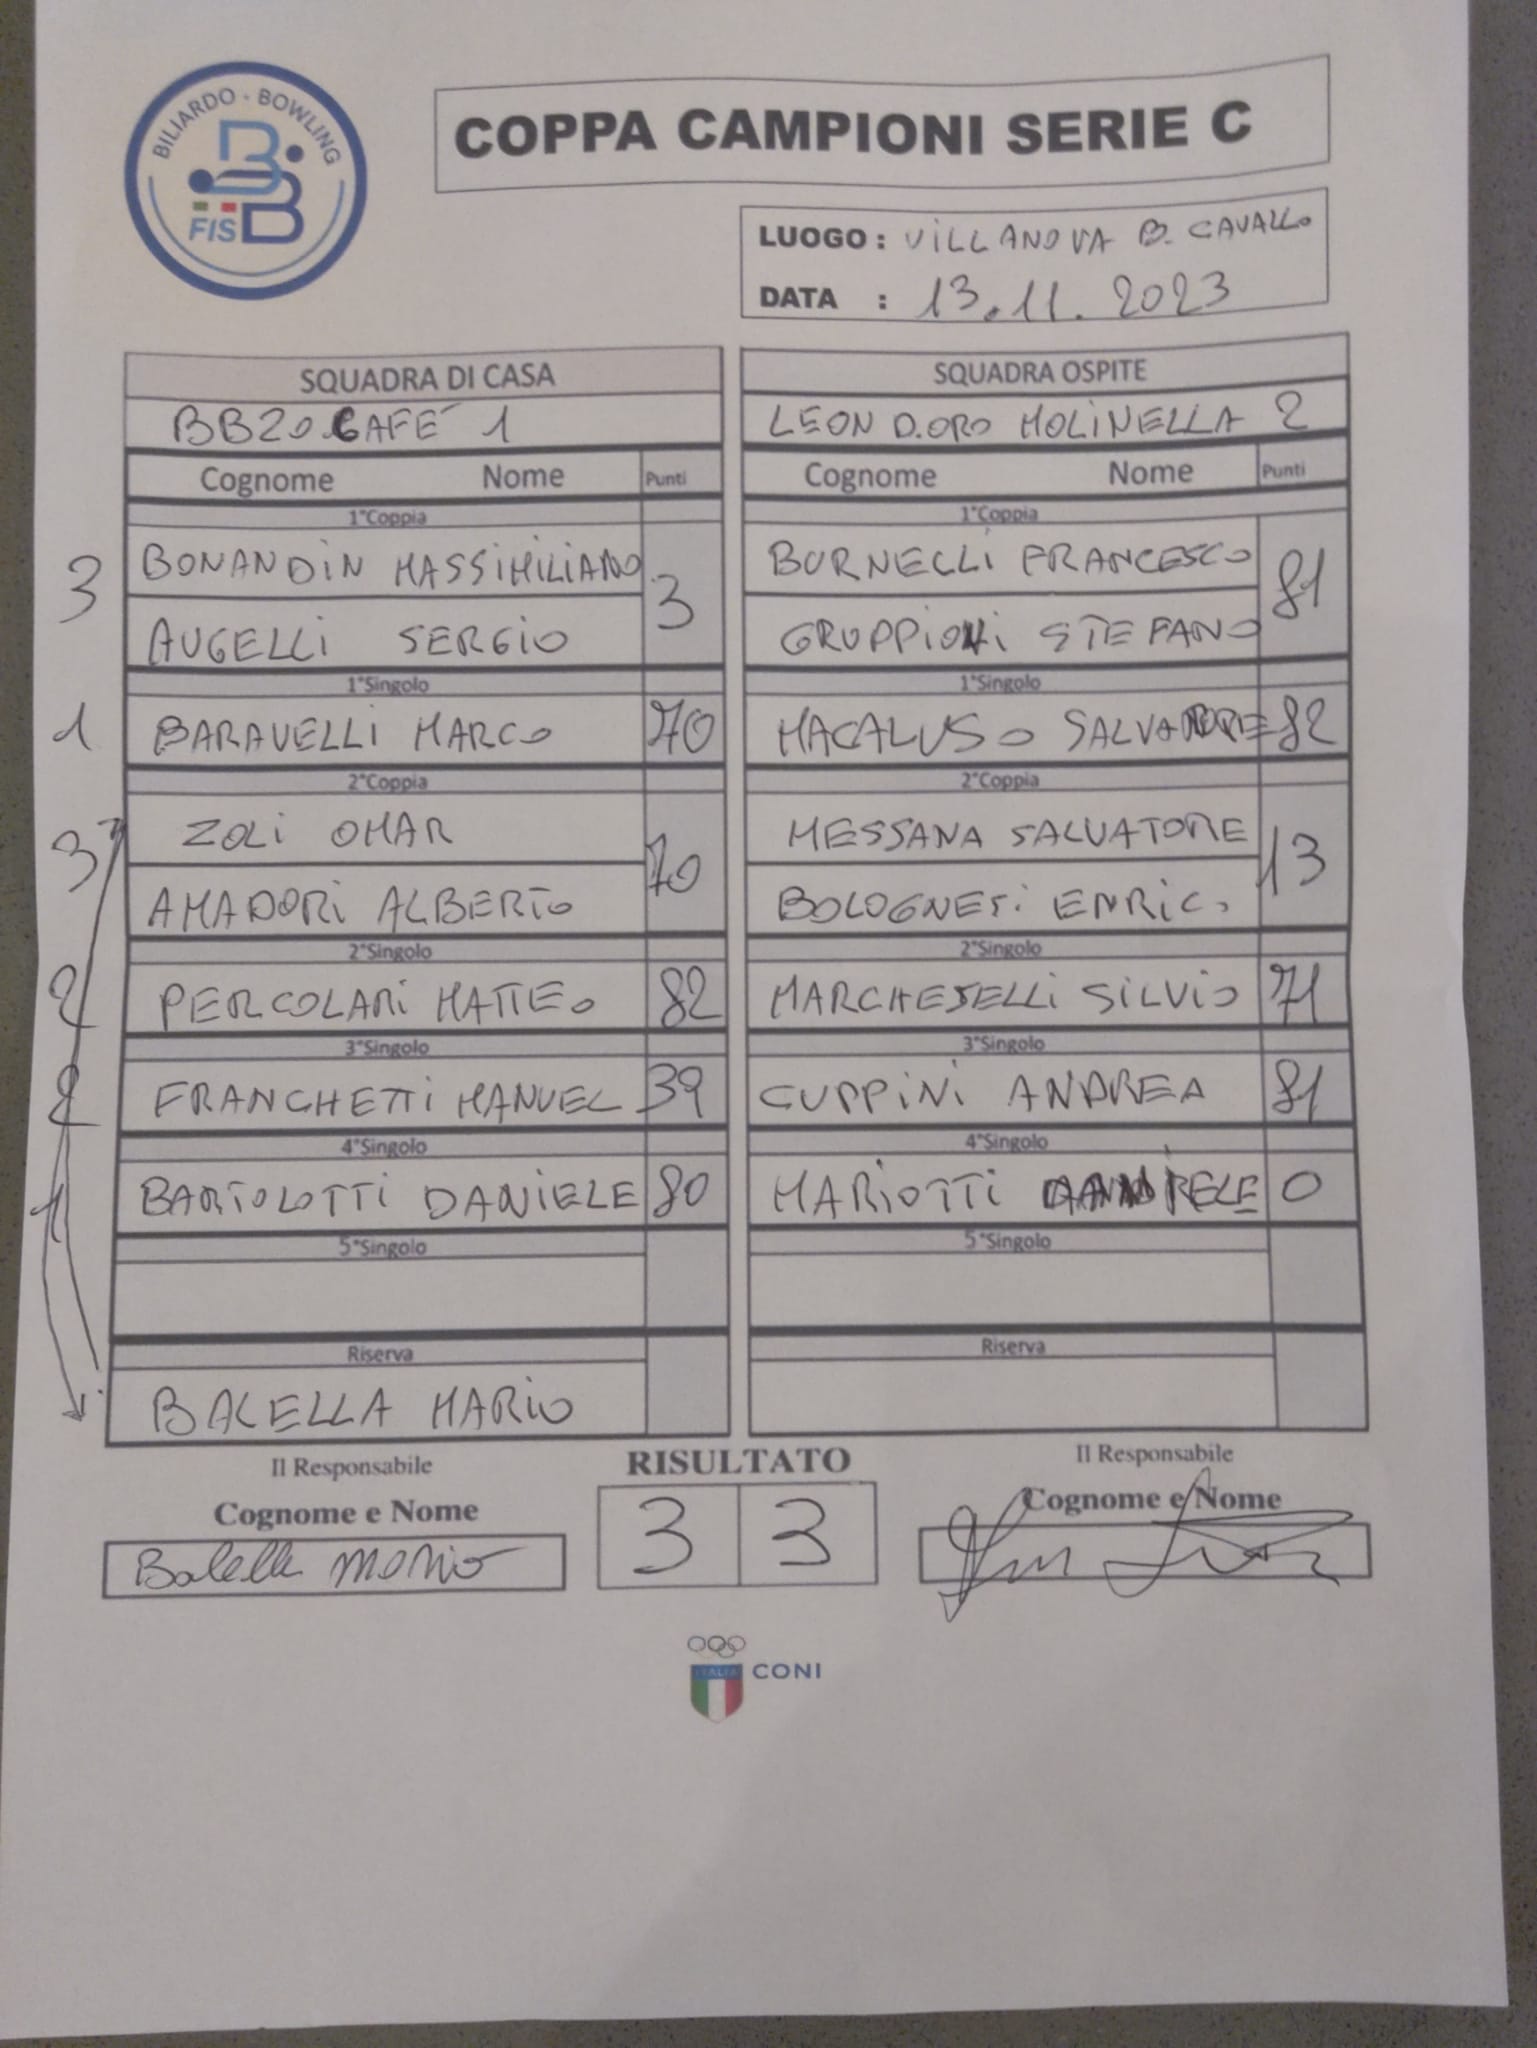 BILIARDO - BOWLING
FISBB
COPPA CAMPIONI SERIE C
LUOGO : VILLANOVA B. CAVALLO
DATA : 13.11.2023
SQUADRA DI CASA
BB20 CAFE' 1
Cognome Nome Punti
1°Coppia
3 BONANDIN MASSIMILIANO 3
AUGELLI SERGIO
1°Singolo
1 BARAVELLI MARCO 70
2°Coppia
3 ZOLI OMAR 70
AMADORI ALBERTO
2°Singolo
2 PERCOLARI MATTEO 82
3°Singolo
2 FRANCHETTI MANUEL 39
4°Singolo
1 BARTOLOTTI DANIELE 80
5°Singolo
Riserva
BALELLA MARIO
SQUADRA OSPITE
LEON D.ORO MOLINELLA 2
Cognome Nome Punti
1°Coppia
BURNELLI FRANCESCO 81
GRUPPIONI STEFANO
1°Singolo
MACALUSO SALVATORE 82
2°Coppia
MESSANA SALVATORE 13
BOLOGNESI ENRICO
2°Singolo
MARCHESELLI SILVIO 71
3°Singolo
CUPPINI ANDREA 81
4°Singolo
MARIOTTI 0
5°Singolo
Riserva
Il Responsabile
Cognome e Nome
Balella Mario
RISULTATO
3 3
Il Responsabile
Cognome e Nome
ITALIA
CONI